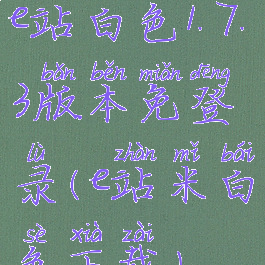 e站白色1.7.
bǎn běn miǎn dēng
3版本免登
lù zhàn mǐ bái
录(e站米白
sè xià zài
色下载)